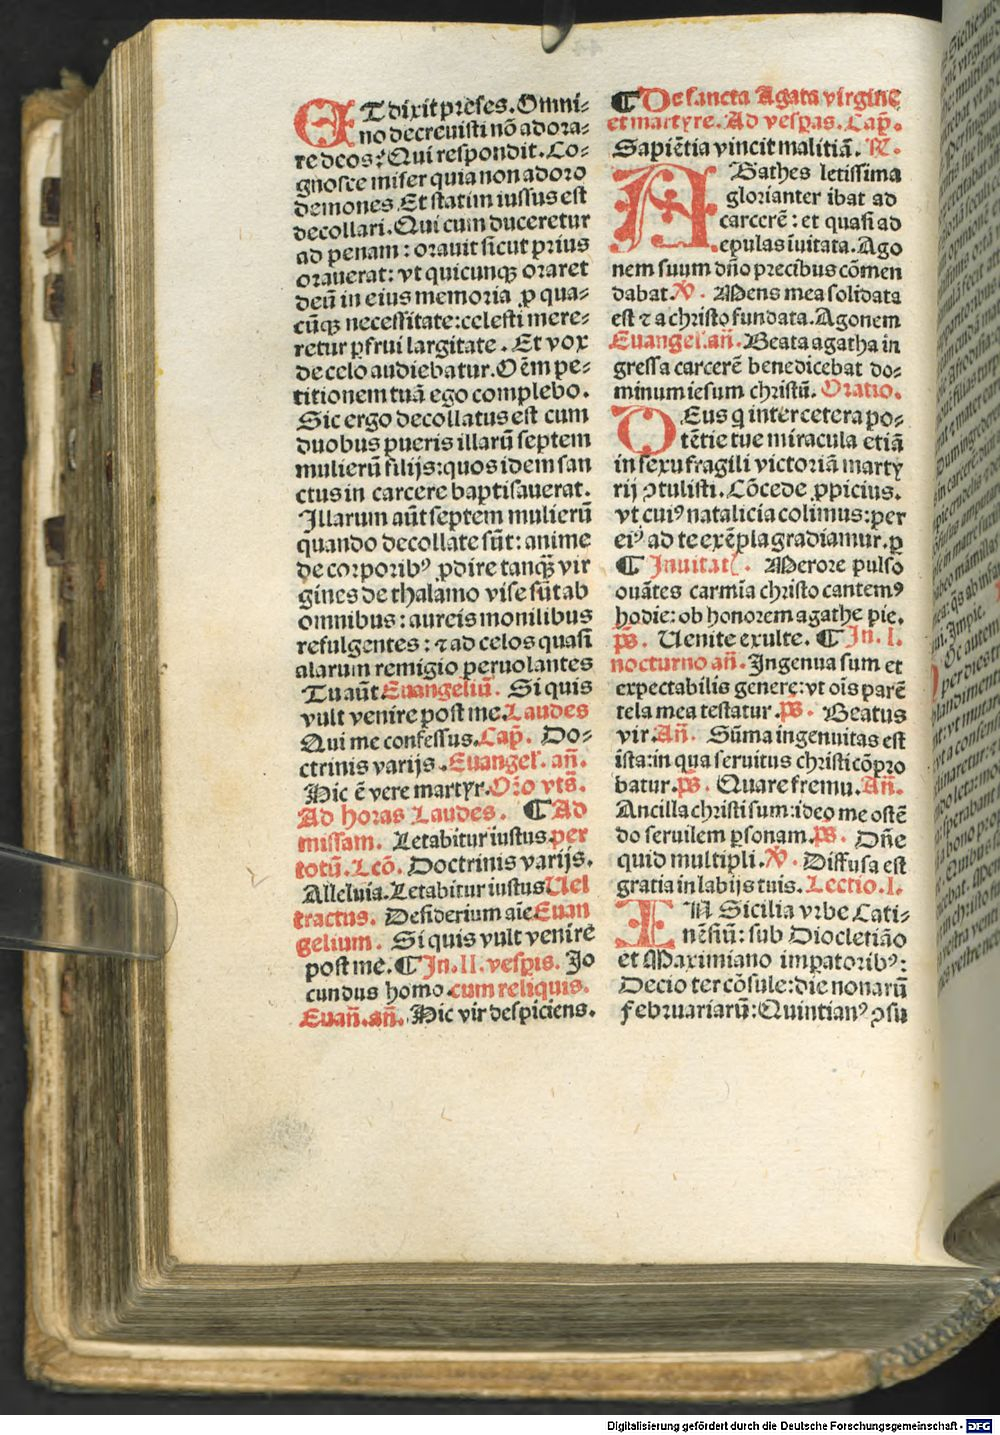 ET dixit preses. Omni⸗
no decreuisti nō adora⸗
re deos? Qui respondit. Co⸗
gnosce miser quia non adoro
demones. Et statim iussus est
decollari. Qui cum duceretur
ad penam: orauit sicut prius
orauerat: vt quicunqꝫ oraret
deū in eius memoria ꝓ qua⸗
cūqꝫ necessitate: celesti mere⸗
retur ꝑfrui largitate. Et vox
de celo audiebatur. Oēm pe⸗
titionem tuā ego complebo.
Sic ergo decollatus est cum
duobus pueris illarū septem
mulierū filijs: quos idem san
ctus in carcere baptisauerat.
Illarum aūt septem mulierū
quando decollate sūt: anime
de corporibꝰ ꝓdire tanqꝫ vir
gines de thalamo vise sūt ab
omnibus: aureis monilibus
refulgentes: ⁊ ad celos quasi
alarum remigio peruolantes
Tu aūt Euangeliū. Si quis
vult venire post me. Laudes
Qui me confessus. Cap̄. Do⸗
ctrinis varijs. Euangel̄. an̄.
Hic ē vere martyr. Oro vts̄.
Ad horas Laudes. ¶ Ad
missam. Letabitur iustus. per
totū. Lcō. Doctrinis varijs.
Alleluia. Letabitur iustus Uel
tractus. Desiderium aīe Euan
gelium. Si quis vult venire
post me. ¶ In. II. vesp̄is. Jo
cundus homo. cum reliquis.
Euan̄. an̄. Hic vir despiciens.
¶ De sancta Agata virgine
et martyre. Ad vesp̄as. Cap̄.
Sapiētia vincit malitiā. ℟.
AGathes letissima
glorianter ibat ad
carcerē: et quasi ad
epulas īuitata. Ago
nem suum dn̄o precibus cōmen
dabat. ℣. Mens mea solidata
est ⁊ a christo fundata. Agonem
Euangel̄. an̄. Beata agatha in
gressa carcerē benedicebat do⸗
minum iesum christū. Oratio.
DEus q̄ inter cetera po⸗
tētie tue miracula etiā
in sexu fragili victoriā marty
rij ꝯtulisti. Cōcede ꝓpicius.
vt cuiꝰ natalicia colimus: per
eiꝰ ad te exēpla gradiamur. ꝑ
¶ Inuitat̄. Merore pulso
ouātes carmīa christo cantemꝰ
hodie: ob honorem agathe pie.
p̄s. Uenite exulte. ¶ In. I.
nocturno an̄. Ingenua sum et
expectabilis genere: vt oīs parē
tela mea testatur. p̄s. Beatus
vir. An̄. Sūma ingenuitas est
ista: in qua seruitus christi cōpro
batur. p̄s. Quare fremu. An̄.
Ancilla christi sum: ideo me ostē
do seruilem ꝑsonam. p̄s. Dn̄e
quid multipli. ℣. Diffusa est
gratia in labijs tuis. Lectio. I.
IN Sicilia vrbe Cati⸗
nēsiū: sub Diocletiāo
et Maximiano imꝑatoribꝰ:
Decio ter cōsule: die nonarū
februariarū: Quintianꝰ ꝯsu
Digitalisierung gefördert durch die Deutsche Forschungsgemeinschaft - DFG